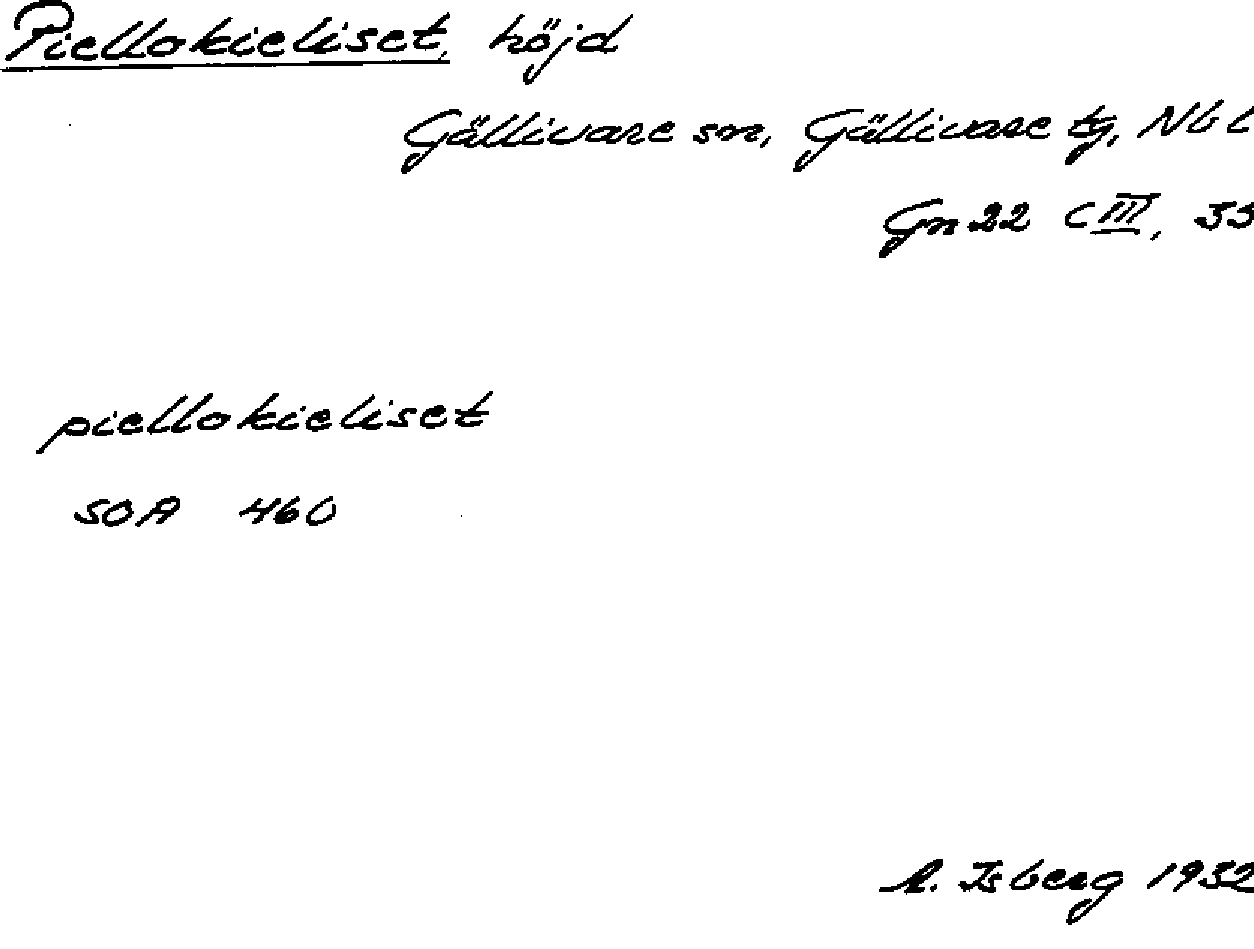 Piellokieliset, höjd
Gällivare sn, Gällivare tg, Nbl
Gn 22 C III, 35
piellokieliset
SOA 460
A. Isberg 1932